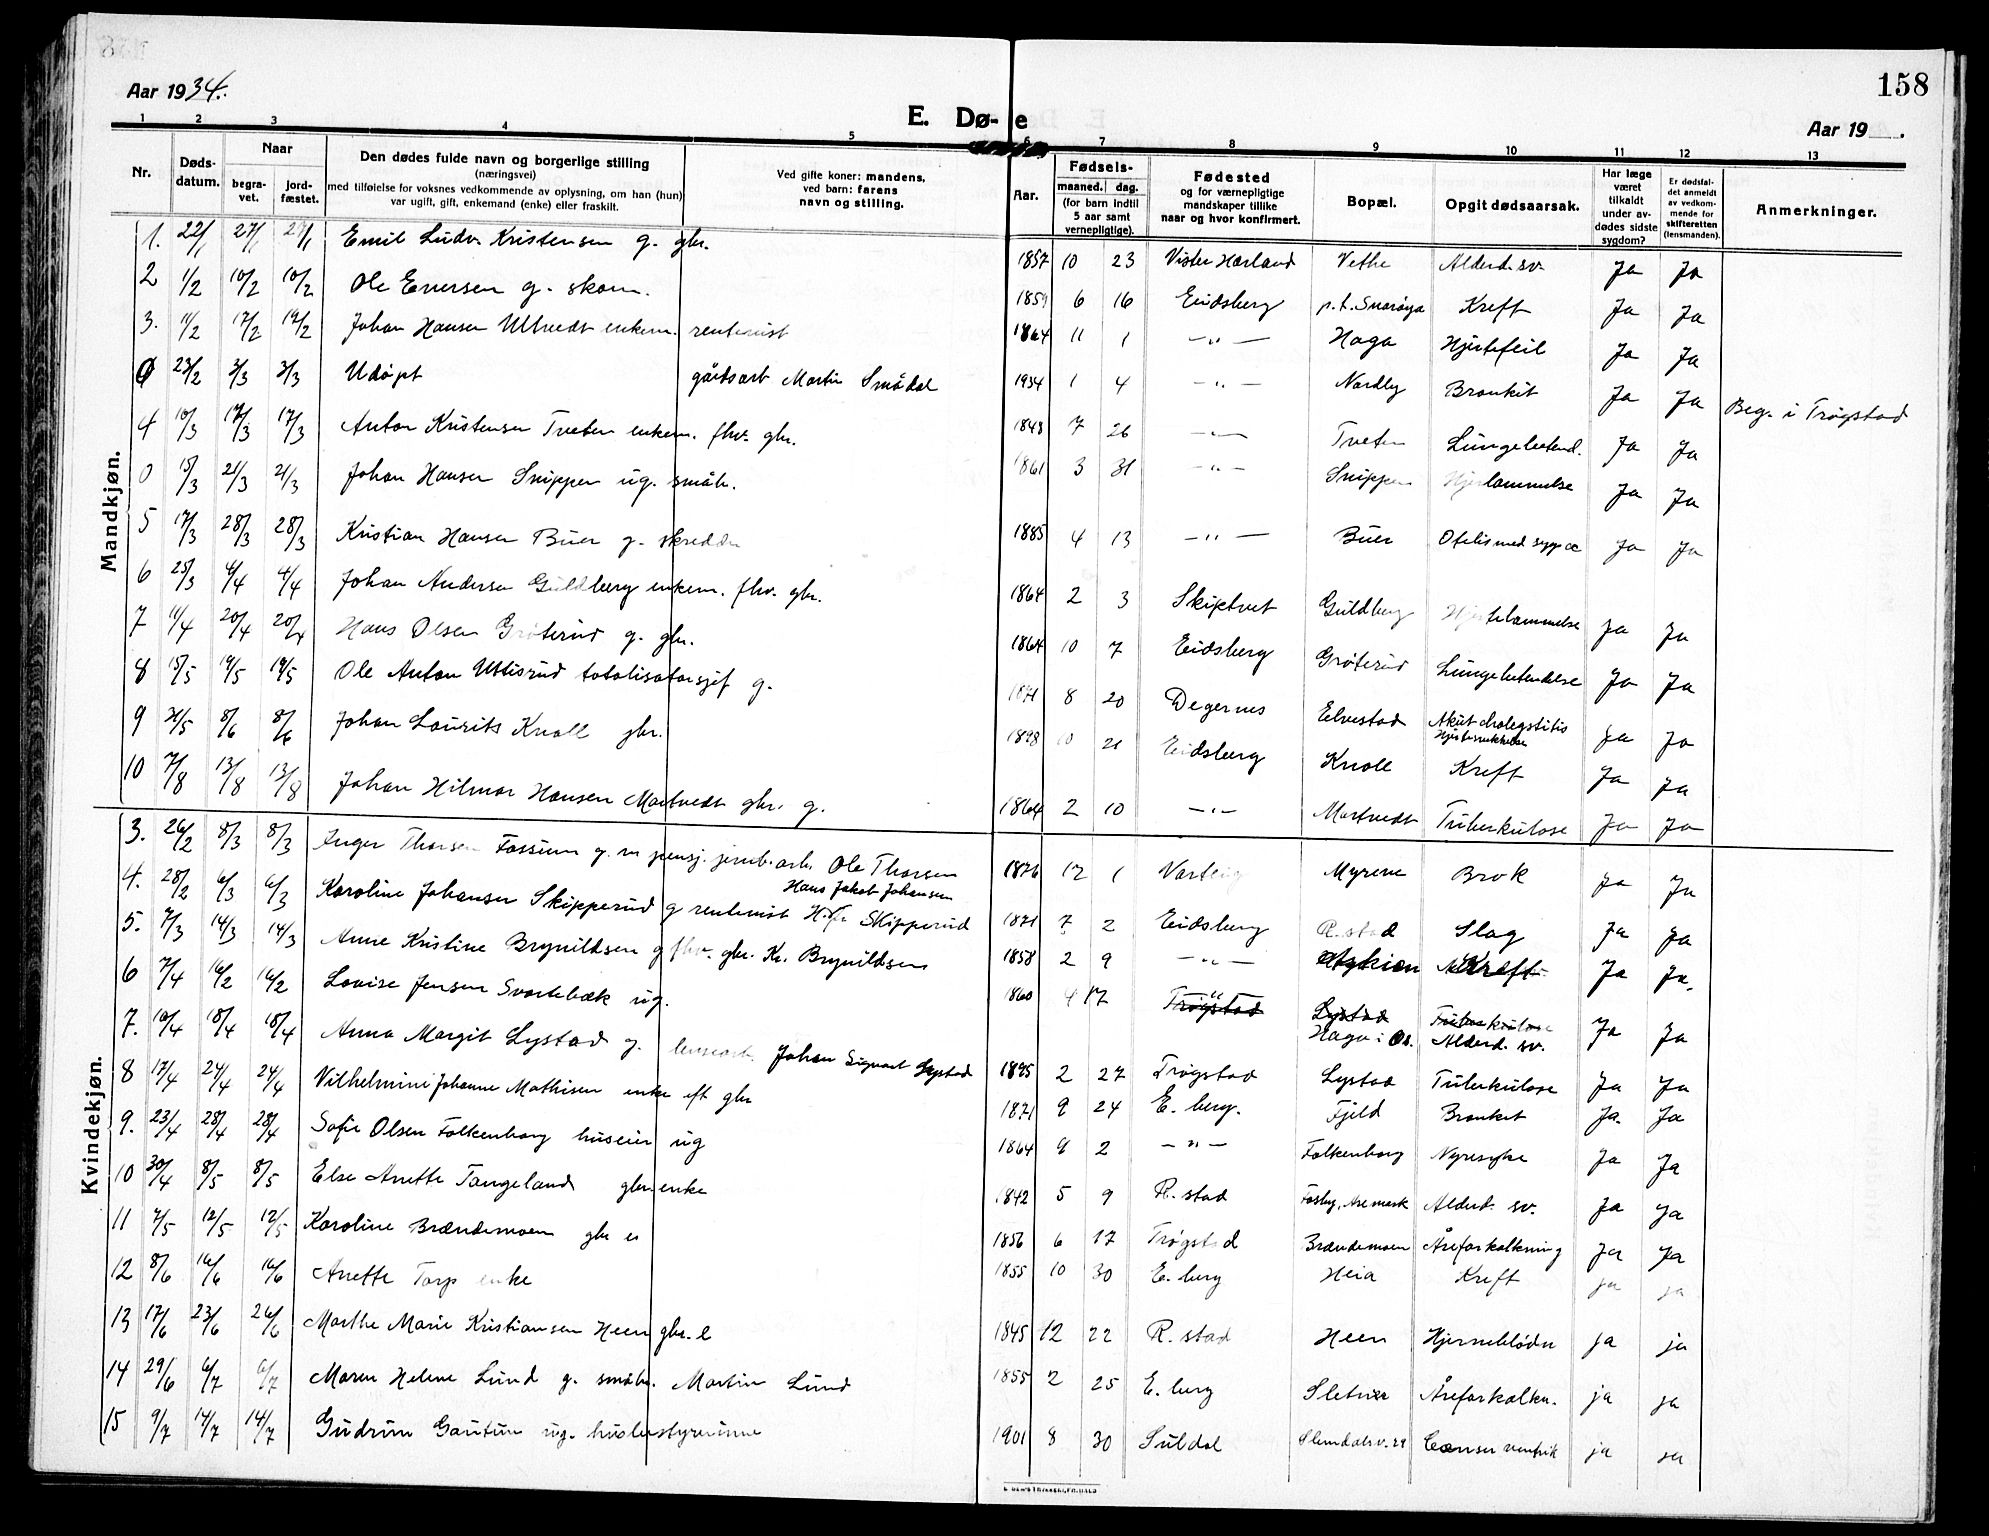 158
Aar 1934.
E. Dø- e
Aar 19 .
1 2 3 4 5 6 7 8 9 10 11 12 13
Nr. Døds-datum. Naar begra-vet. jord-fæstet. Den dødes fulde navn og borgerlige stilling (næringsvei) med tilføielse for voksnes vedkommende av oplysning, om han (hun) var ugift, gift, enkemand (enke) eller fraskilt. Ved gifte koner: mandens, ved barn: farens navn og stilling. Aar. Fødsels- maaned. dag. (for barn indtil 5 aar samt vernepligtige). Fødested og for værnepligtige mandskaper tillike naar og hvor konfirmert. Bopæl. Opgit dødsaarsak. Har læge været tilkaldt under av-dødes sidste sygdom? Er dødsfal-det anmeldt av vedkom-mende for skifteretten (lensmanden). Anmerkninger.
Mandkjøn.
1. 22/1 27/1 27/1 Emil Ludv. Kristensen g. gbr. 1857 10 23 Vister Hærland Vethe Alderd. sv. Ja Ja
2 1/2 10/2 10/2 Ole Enersen g. skom. 1859 6 16 Eidsberg p.t. Snarøya Kreft Ja Ja
3. 11/2 17/2 17/2 Johan Hansen Ultvedt enkem. rentenist 1864 11 1 -"- Haga Hjertefeil Ja Ja
0 23/2 3/3 3/3 Udøpt gårdsarb Martin Smådal 1934 1 4 -"- Nordby Bronkit Ja Ja Beg. i Trøgstad
4 10/3 17/3 17/3 Anton Kristensen Tveten enkem. fhv. gbr. 1848 7 26 -"- Tveten Lungebetend. Ja Ja
0 15/3 21/3 21/3 Johan Hansen Snippen ug. småbr. 1861 3 31 -"- Snippen Hjertelammelse Ja Ja
5 17/3 28/3 28/3 Kristian Hansen Buer g. skredder 1885 4 13 -"- Buer Ja Ja
6 25/3 4/4 4/4 Johan Andersen Guldberg enkem. fhv. gbr. 1864 2 3 Skiptvet Guldberg Hjertelammelse Ja Ja
7 11/4 20/4 20/4 Hans Olsen Grøterud g. gbr. 1864 10 7 Eidsberg Grøterud Lungebetendelse Ja Ja
8 15/5 19/5 19/5 Ole Anton Uttisrud totalisatorsjef g. 1871 8 20 Degernes Elvestad Akut cholegstitis Ja Ja
9 31/5 8/6 8/6 Johan Laurits Knoll gbr. 1898 10 21 Eidsberg Knoll Kreft Ja Ja
10 7/8 13/8 13/8 Johan Hilmar Hansen Mortvedt gbr. g. 1864 2 10 -"- Mortvedt Tuberkulose Ja Ja
Kvindekjøn.
3. 26/2 8/3 8/3 Inger Thorsen Fossum g. m pensj. jernb.arb. Ole Thorsen 1876 12 1 Varteig Myrene Brok Ja Ja
4. 28/2 6/3 6/3 Karoline Johansen Skipperud g rentenist Hans Jakob Johansen Skipperud 1871 7 2 Eidsberg R.stad Slag Ja Ja
5. 7/3 14/3 14/3 Anne Kristine Brynildsen g fhv. gbr. Kr. Brynildsen 1858 2 9 -"- Kreft Ja Ja.
6 7/4 16/2 16/2 Lovise Jensen Svartebæk ug. 1860 4 17 Trøgstad " Lystad Haga i Tuberkulose Alderd. sv. Ja Ja
7. 10/4 18/4 18/4 Anna Margit Lystad g. Johan Sigvart Lystad 1895 2 27 Trøgstad Lystad Tuberkulose Ja Ja
8 17/4 24/4 24/4 Vilhelmine Johanne Mathisen enke eft gbr 1871 9 24 E. berg. Fjeld Bronkit Ja. Ja
9. 23/4 28/4 28/4 Sofie Olsen Falkenborg huseier ug 1864 9 2 -"- Falkenborg Nyresyke Ja Ja
10 30/4 8/5 8/5 Else Anette Tangeland gbr.enke 1842 5 9 R. stad Fosby, Aremark Alderd. sv. Ja Ja
11 7/5 12/5 12/5 Karoline Brændemoen gbr e 1856 6 17 Trøgstad Brændemoen Åreforkalkning Ja Ja
12 8/6 16/6 16/6 Anette Torp enke 1855 10 30 E. berg Heia Kreft ja ja
13 17/6 23/6 26/6 Marthe Marie Kristiansen Heen gbr. e 1845 12 22 R. stad Heen Hjerneblødn ja ja
14 29/6 6/7 6/7 Maren Helene Lund g. småbr. Martin Lund 1855 2 25 E. berg Sletner Åreforkalkn. ja ja
15 9/7 14/7 14/7 Gudrun Gautun ug. husbestyrerinne 1901 8 30 Suldal Slemdalsv. 29 Cancer ventrik ja ja